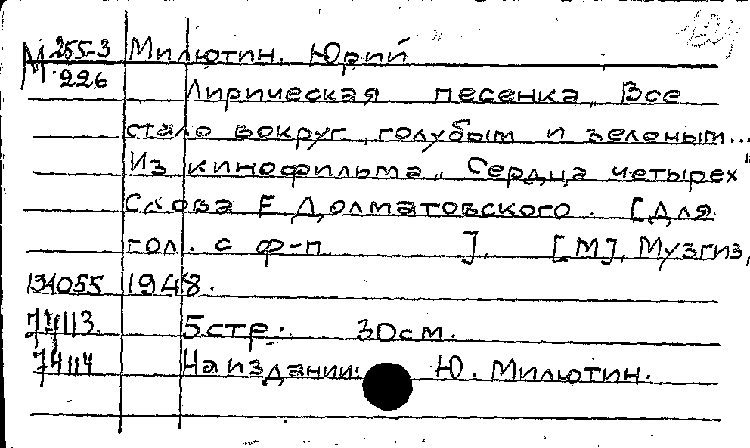 М 255-3 Милютин, Юрий
226
Лирическая песенка „Все
стало вокруг голубым и зеленым...
Из кинофильма „Сердца четырех"
Слова Е Долматовского. [Для
гол. с ф-п ]. [М], Музгиз,
131055 1948.
74113 5 стр. 30 см.
74114 На издании: Ю. Милютин.